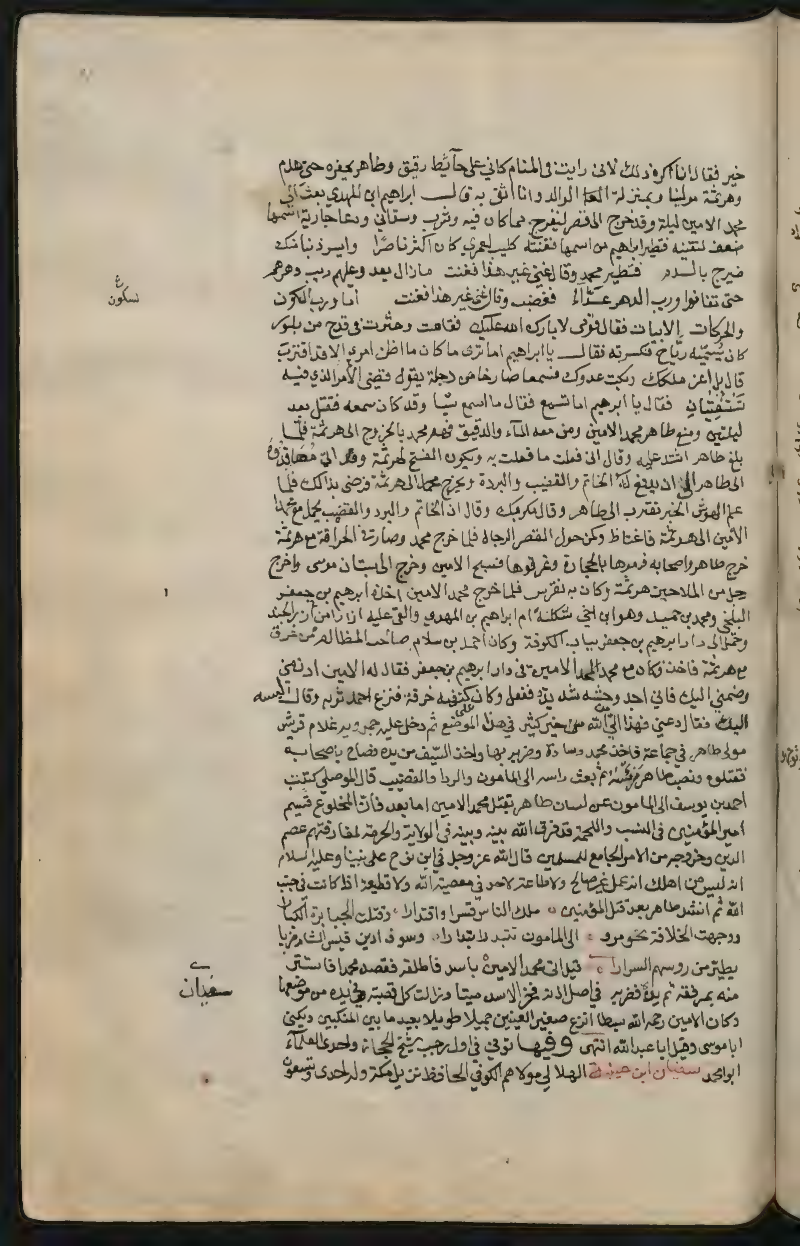 خير فقال انا اكره ذلك لاني رايت في المنام كاني على حائط رقيق وطاهر يحفره حتى هدم
وهرثمة مولينا وبمنزلة الوالد وانا اثق به قال ابراهيم ابن المهدي بعث الي
محمد الامين ليلة وقد خرج الى قصر ليتفرج مما كان فيه وشرب وسقاني ودعا جارية اسمها
ضعف لتغنيه فتطير ابراهيم من اسمها فغنته كليب لعمري كان اكثر ناصرا وايسر ذنبا منك
ضرج بالدم فتطير محمد وقال غني غير هذا فغنت ما زال يعد وعليهم ريب دهرهم
حتى تفانوا وريب الدهر عداء فغضب وقال غني غير هذا فغنت اما ورب السكون
والحركات الابيات فقال قومي لا بارك الله عليك فقامت وعثرت في قدح من بلور
كان يسميه رباح فكسرته فقال يا ابراهيم اما ترى ما كان ما اظن امري الا قد اقترب
قال بل اعز ملكك وكبت عدوك فسمعنا صارخا من دجلة يقول قضي الامر الذي فيه
تستفتيان فقال يا ابرهيم اما تسمع فقال ما اسمع شيا وقد كان سمعه فقتل بعد
ليلتين ومنع طاهر محمد الامين ومن معه الماء والدقيق فهم محمد بالخروج الى هرثمة فلما
بلغ طاهر اشتد عليه وقال اني فعلت ما فعلت به ويكون الفتح لهرثمة
الى طاهر ان يدفع له الخاتم والقضيب والبردة ويخرج محمد الى هرثمة فرضي بذلك فلما
علم الهرش الخبر تقرب الى طاهر وقال مكر بك وقال ان الخاتم والبرد والقضيب يحمل مع محمد
الامين الى هرثمة فاغتاظ وكمن حول القصر الرجالة فلما خرج محمد وصار في الحراقة مع هرثمة
خرج طاهر واصحابه فرموها بالحجارة وغرقوها فسبح الامين وخرج الى بستان موسى واخرج
رجل من الملاحين هرثمة وكان به نقرس فلما خرج محمد الامين اخذه ابرهيم بن جعفر
البلخي ومحمد بن حميد وهو ابن اخي شكلة ام ابراهيم بن المهدي والقي عليه ازارا من ازر الجند
وحمل الى دار ابرهيم بن جعفر بباب الكوفة وكان احمد بن سلام صاحب المظالم ممن غرق
مع هرثمة فاخذ وكان مع محمد الامين في دار ابرهيم بن جعفر فقال له الامين ادن مني
وضمني اليك فاني اجد وحشة شديدة ففعل وكان كتفيه خرقة فنزع احمد ثوبه وقال البسه
اليك فقال دعني فهذا الي من الله خير كثير في هذا الموضع ثم دخل عليه حمرويه غلام قريش
مولى طاهر في جماعة فاخذ محمد وسادة وضربه بها واخذ السيف من يده فصاح باصحابه
فقتلوه ونصب طاهر ثم بعث راسه الى المامون والردا والقضيب قال الموصلي كتب
احمد بن يوسف الى المامون عن لسان طاهر بقتل محمد الامين اما بعد فان المخلوع قسيم
امير المؤمنين في النسب واللحمة قد فرق الله بينه وبينه في الولاية والحرمة لمفارقته عصم
الدين وخروجه من الامر الجامع للمسلمين قال الله عز وجل في ابن نوح على نبينا وعليه السلام
انه ليس من اهلك انه عمل غير صالح ولا طاعة لاحد في معصية الله ولا قطيعة اذا كانت في جنب
الله ثم انشد طاهر بعد قتل المؤمنين ملك الناس قسرا واقتدارا وقتلت الجبابرة الكبارا
ووجهت الخلافة نحو مرو الى المامون تبتدر ابتدارا وسوف ادين قيس الشام ضربا
يطير من روسهم الشرارا قيل اتى محمد الامين باسد فاطلقه فقصد محمدا فاستتر
منه بمرفقة ثم يده فضربه في اصل اذنه فخر الاسد ميتا وزالت كل قصبة في يده من موضعها
وكان الامين رحمه الله سبطا انزع صغير العينين جميلا طويلا بعيد ما بين المنكبين ويكنى
ابا موسى وقيل ابا عبد الله انتهى وفيها توفي في اول رجب شيخ الحجاز واحد العلماء
ابو محمد سفيان ابن عيينة الهلالي مولاهم الكوفي الحافظ نزيل مكة وله احدى وتسعون
نسكون
سفيان